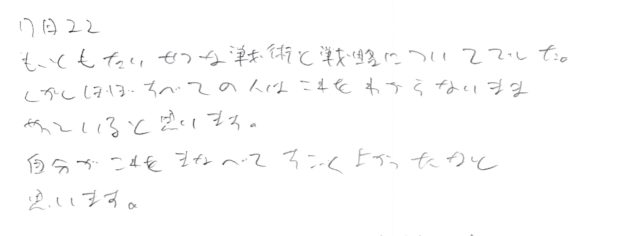 17日22
もっともたいせつな戦術と戦略についてでした。
しかしほぼすべての人はこれをわからないまま
やっていると思います。
自分がこれをまなべてすごくよかったかと
思います。